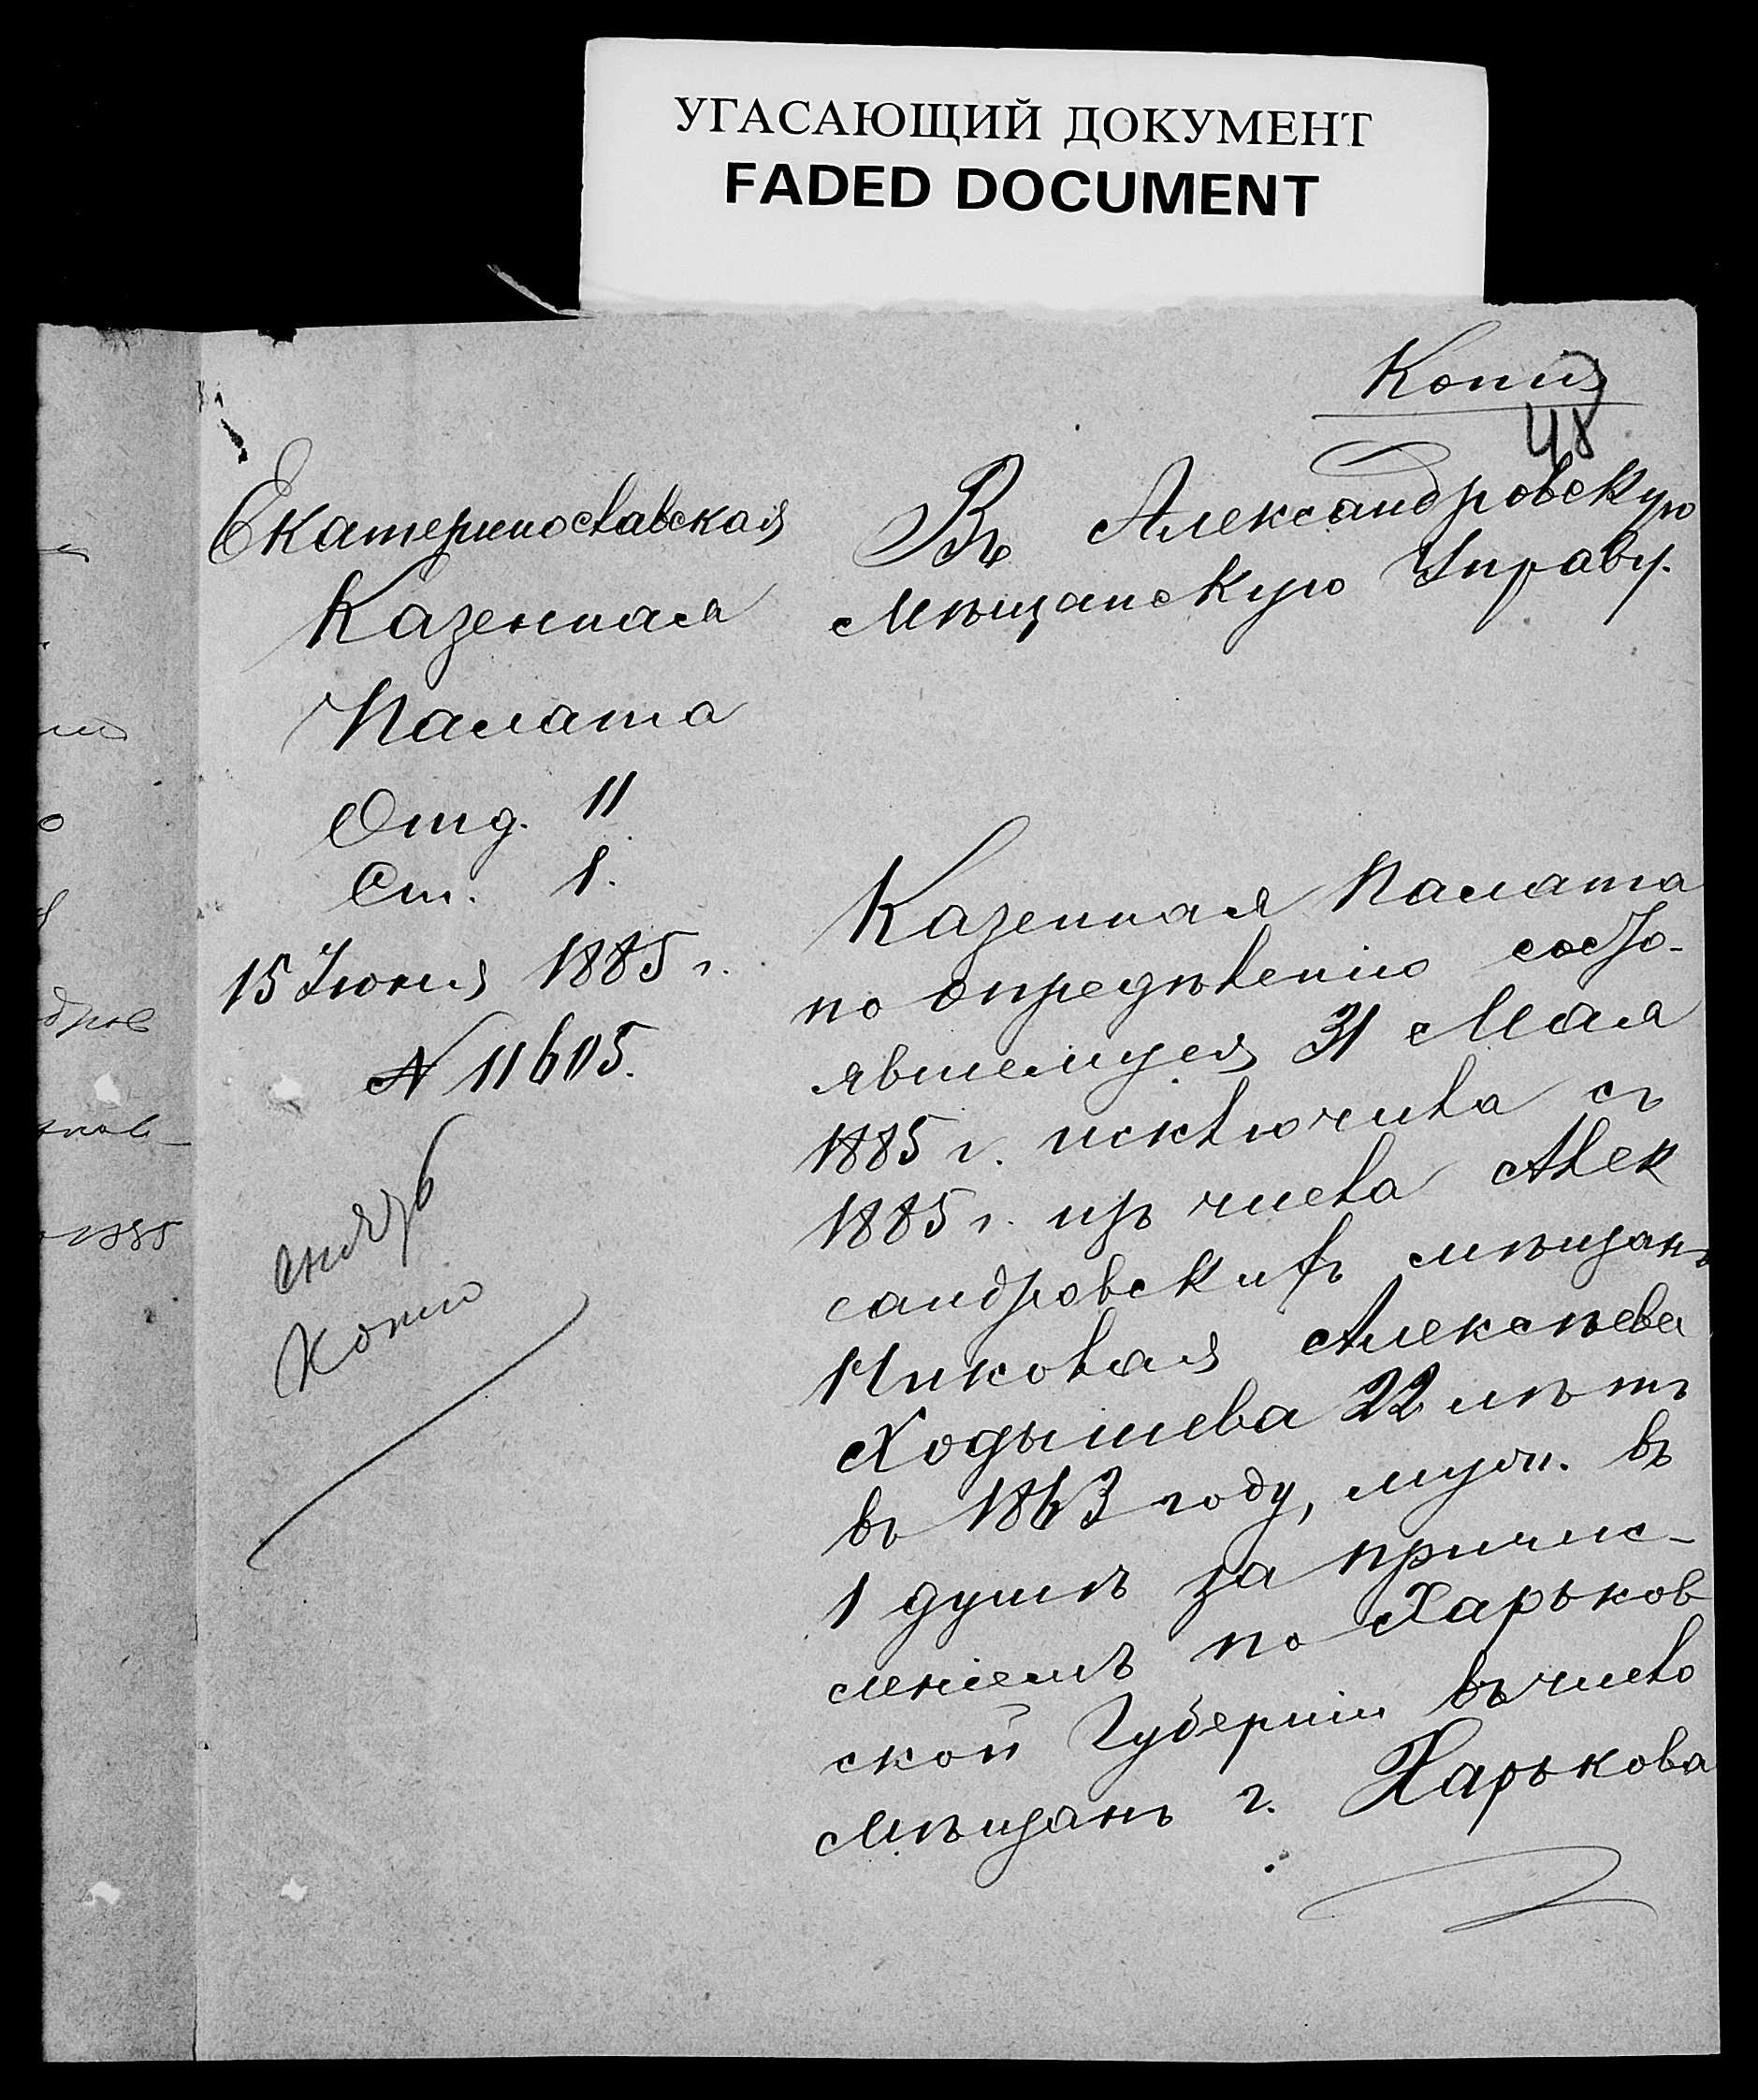 УГАСАЮЩИЙ ДОКУМЕНТ
FADED DOCUMENT
Копія
48
Екатеринославская
Казенная
Палата
Отд. II
Ст. 1.
15 Іюня 1885 г.
N 11605.
снять
копію
Въ Александровскую
Мѣщанскую Управу.
Казенная Палата
по опредѣленію состо-
явшемуся 31 Мая
1885 г. исключила съ
1885 г. изъ числа Алек
сандровскихъ мѣщанъ
Николая Алексѣева
Ходышева 22 лѣтъ
въ 1863 году, муж. въ
1 душѣ за причис-
леніемъ по Харьков
ской Губерніи въ число
мѣщанъ г. Харькова
дров
1885